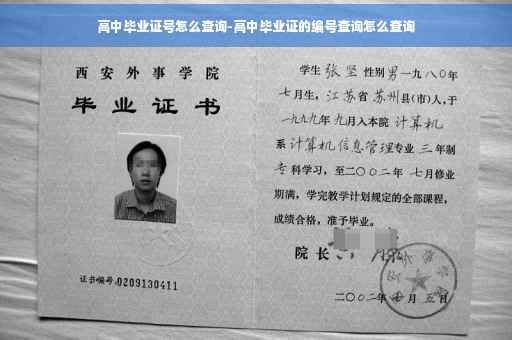 高中毕业证号怎么查询-高中毕业证的编号查询怎么查询
西安外事学院
毕业证书
证书编号:0209130411
学生 张坚 性别 男 一九八〇年
七月生, 江苏省 苏州县(市)人,于
一九九九年 九月入本院 计算机
系 计算机信息管理专业 三 年制
专 科学习, 至二〇〇二年 七月修业
期满, 学完教学计划规定的全部课程,
成绩合格, 准予毕业。
院长
二〇〇二年 七 月 五 日